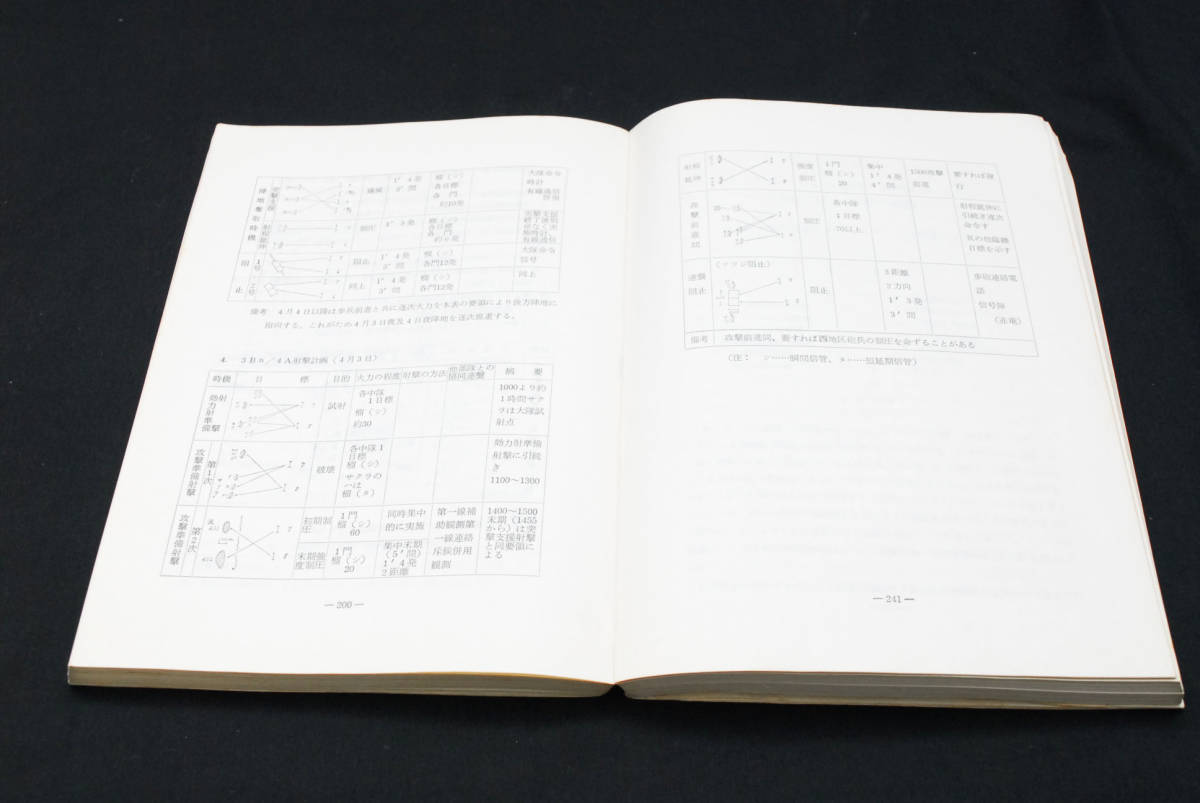 陣地奪取時機
突撃支援
射程延伸
1′ 4発
5′ 間
榴（シ）
各目標
各門
約10発
大隊命令
時計
有線通信
併用
制圧
4′ 3発
榴（シ）
各目標
各門
突撃支援
有線通信
阻止
1号
阻止
1′ 4発
5′ 間
榴（シ）
各門12発
大隊命令
信号
2号
同上
1′ 4発
5′ 間
榴（シ）
各門12発
同上
備考　4月4日以降は歩兵前進と共に逐次火力を本表の要領により後方陣地に
指向する。これがため4月3日夜及4日夜陣地を逐次推進する。
4.　3Bn／4A射撃計画（4月3日）
時機　目　標　目的　火力の程度　射撃の方法　他部隊との協同連繋　摘　要
効力射準備射撃
試射
各中隊
1目標
榴（シ）
約30
1000より約
1時間サク
ラは大隊試
射点
攻撃準備射撃
第1次
破壊
各中隊1
目標
榴（シ）
サクラの
ハは
榴（タ）
効力射準備
射撃に引続
き
1100～1300
攻撃準備射撃
第2次
初期制圧
1門
榴（シ）
60
同時集中
的に実施
第一線補
助観測第
一線連絡
斥候併用
観測
1400～1500
末期（1455
から）は突
撃支援射撃
と同要領に
よる
末期強度制圧
1門
榴（シ）
20
集中末期
（5′間）
1′ 4発
2距離
―200―
射程
延伸
強度
制圧
1門
榴（シ）
20
集中
1′ 4発
4′ 間
1500攻撃
前進
要すれば復
行
攻撃前進間
制圧
各中隊
1目標
70以上
射程延伸に
引続き逐次
命令す
其の他臨機
目標を示す
逆襲
阻止
（ツツジ阻止）
阻止
3距離
2方向
1′ 3発
3′ 間
歩砲連絡電
話
信号弾
（赤竜）
備考　攻撃前進間、要すれば西地区砲兵の制圧を命ずることがある
（注：　シ……瞬間信管、タ……短延期信管）
―241―